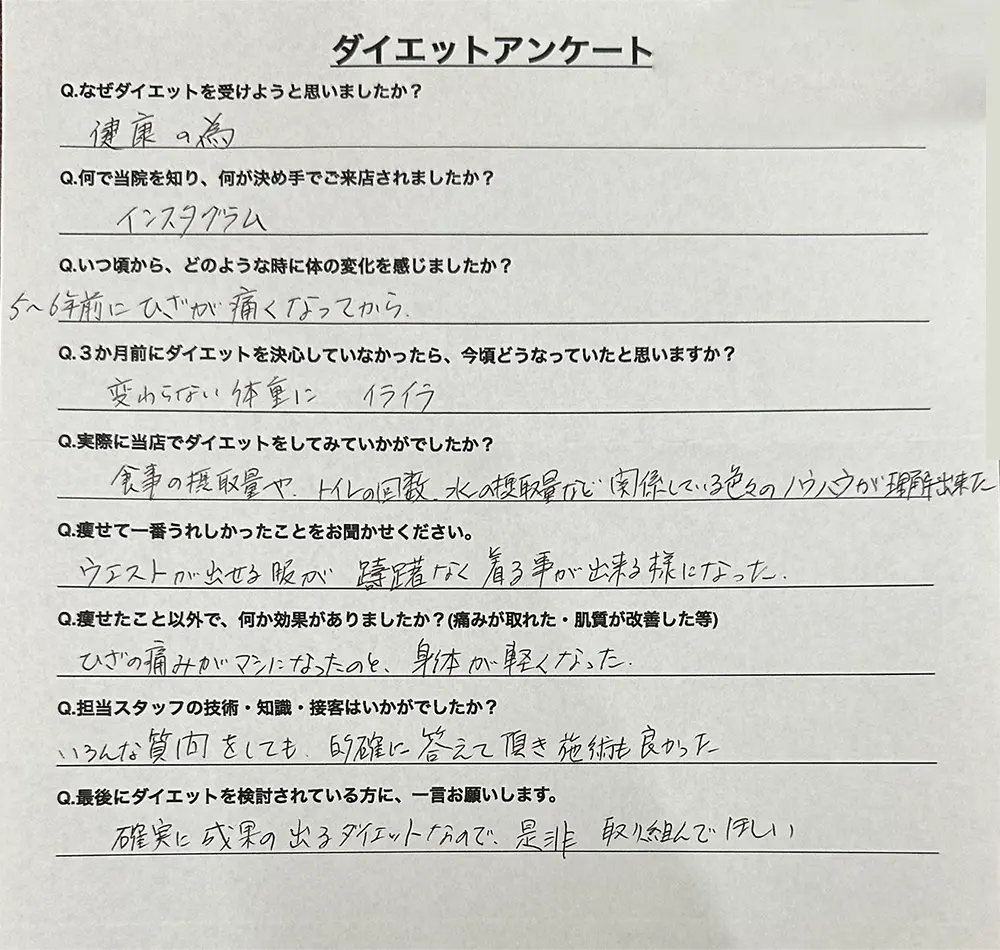 ダイエットアンケート
Q.なぜダイエットを受けようと思いましたか？
健康の為
Q.何で当院を知り、何が決め手でご来店されましたか？
インスタグラム
Q.いつ頃から、どのような時に体の変化を感じましたか？
5〜6年前にひざが痛くなってから.
Q.３か月前にダイエットを決心していなかったら、今頃どうなっていたと思いますか？
変わらない体重に イライラ
Q.実際に当店でダイエットをしてみていかがでしたか？
食事の摂取量や、トイレの回数、水の摂取量など関係している色々のノウハウが理解出来た
Q.痩せて一番うれしかったことをお聞かせください。
ウエストが出せる服が 躊躇なく着る事が出来る様になった.
Q.痩せたこと以外で、何か効果がありましたか？(痛みが取れた・肌質が改善した等)
ひざの痛みがマシになったのと、身体が軽くなった.
Q.担当スタッフの技術・知識・接客はいかがでしたか？
いろんな質問をしても、的確に答えて頂き施術も良かった
Q.最後にダイエットを検討されている方に、一言お願いします。
確実に成果の出るダイエットなので、是非 取り組んでほしい